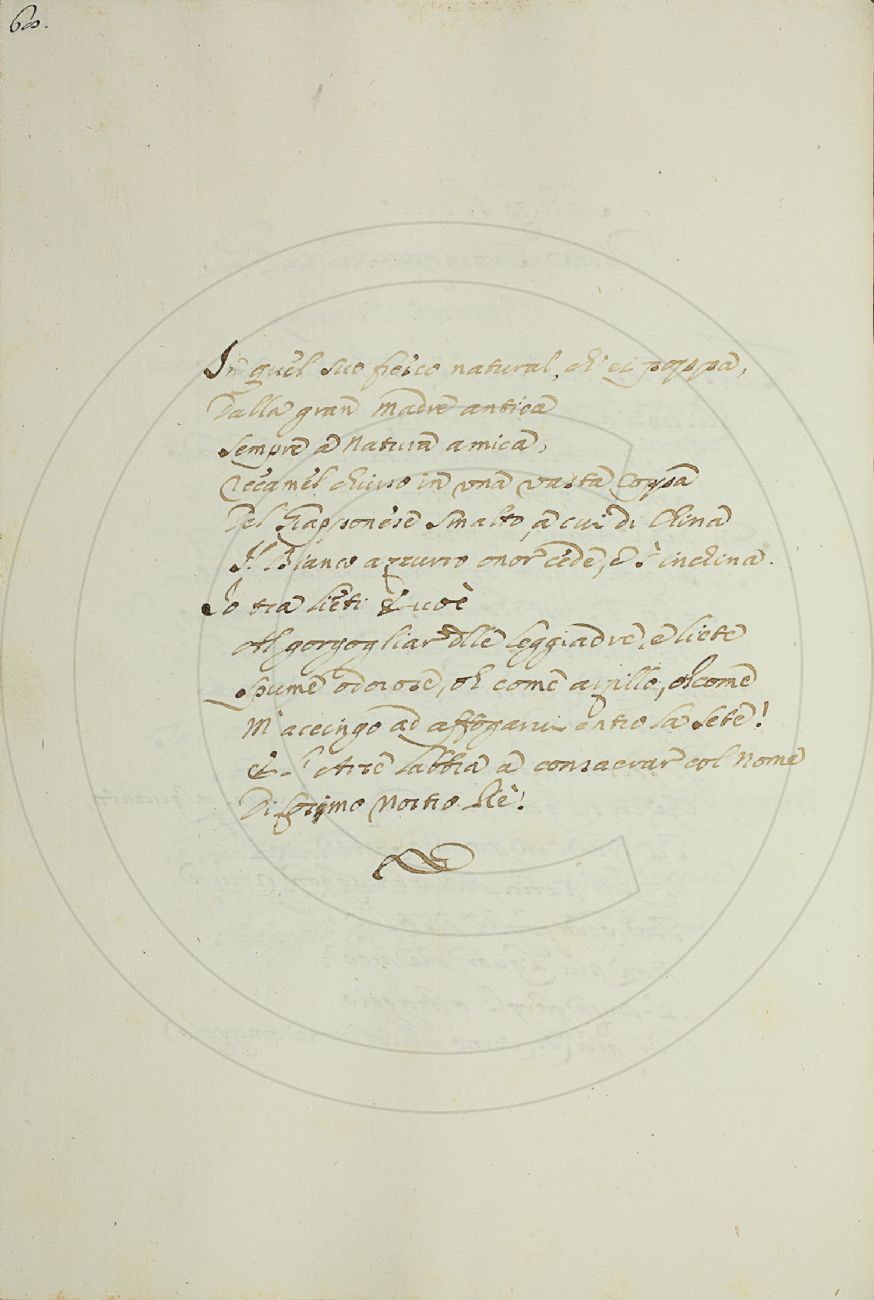 60.
In quel suo fresco natural, ch' ei poppa,
Dalla gran Madre antica
Sempre a Natura amica,
Recamel chiuso in una vasta Coppa
Del Giapponese Smalto, a cui di China
Il Bianco azzurro onor cede, e s' inchina.
Io tra lieti Evoè
Al gorgogliar delle leggiadre, e liete
Spume odorose, oh come arzillo, oh come
M' accingo ad affogarvi entro la Sete!
E l' Arse labbia a consacrar col Nome
Di Cosimo Nostro Rè!